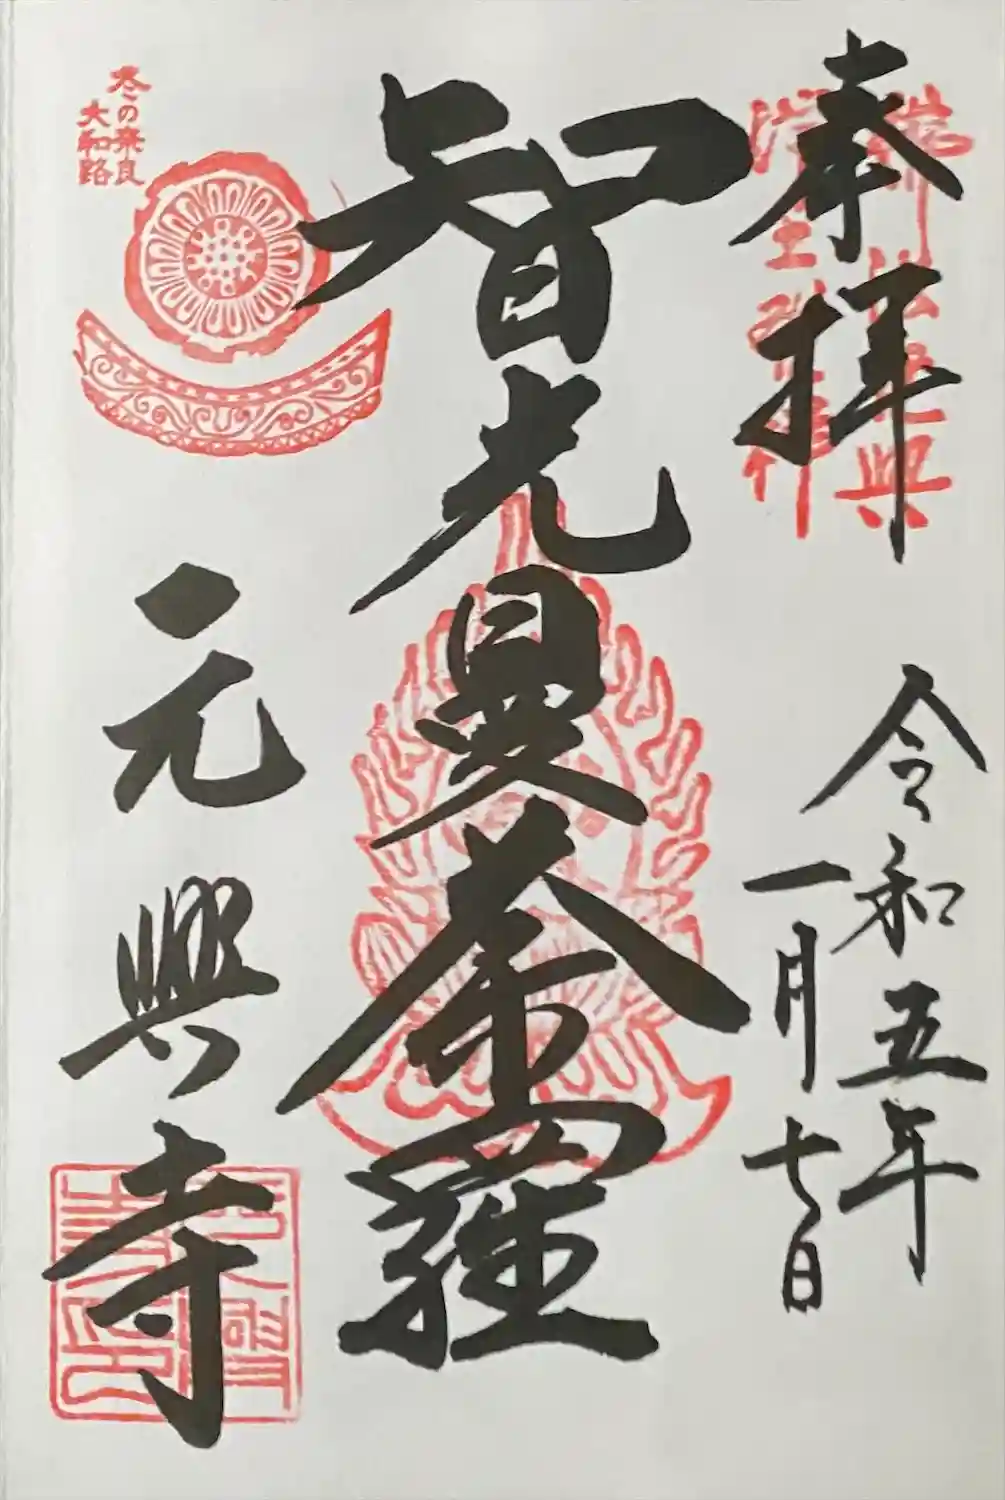 奉拝
令和五年
一月七日
智光曼荼羅
冬の奈良
大和路
元興寺
元興
寺印